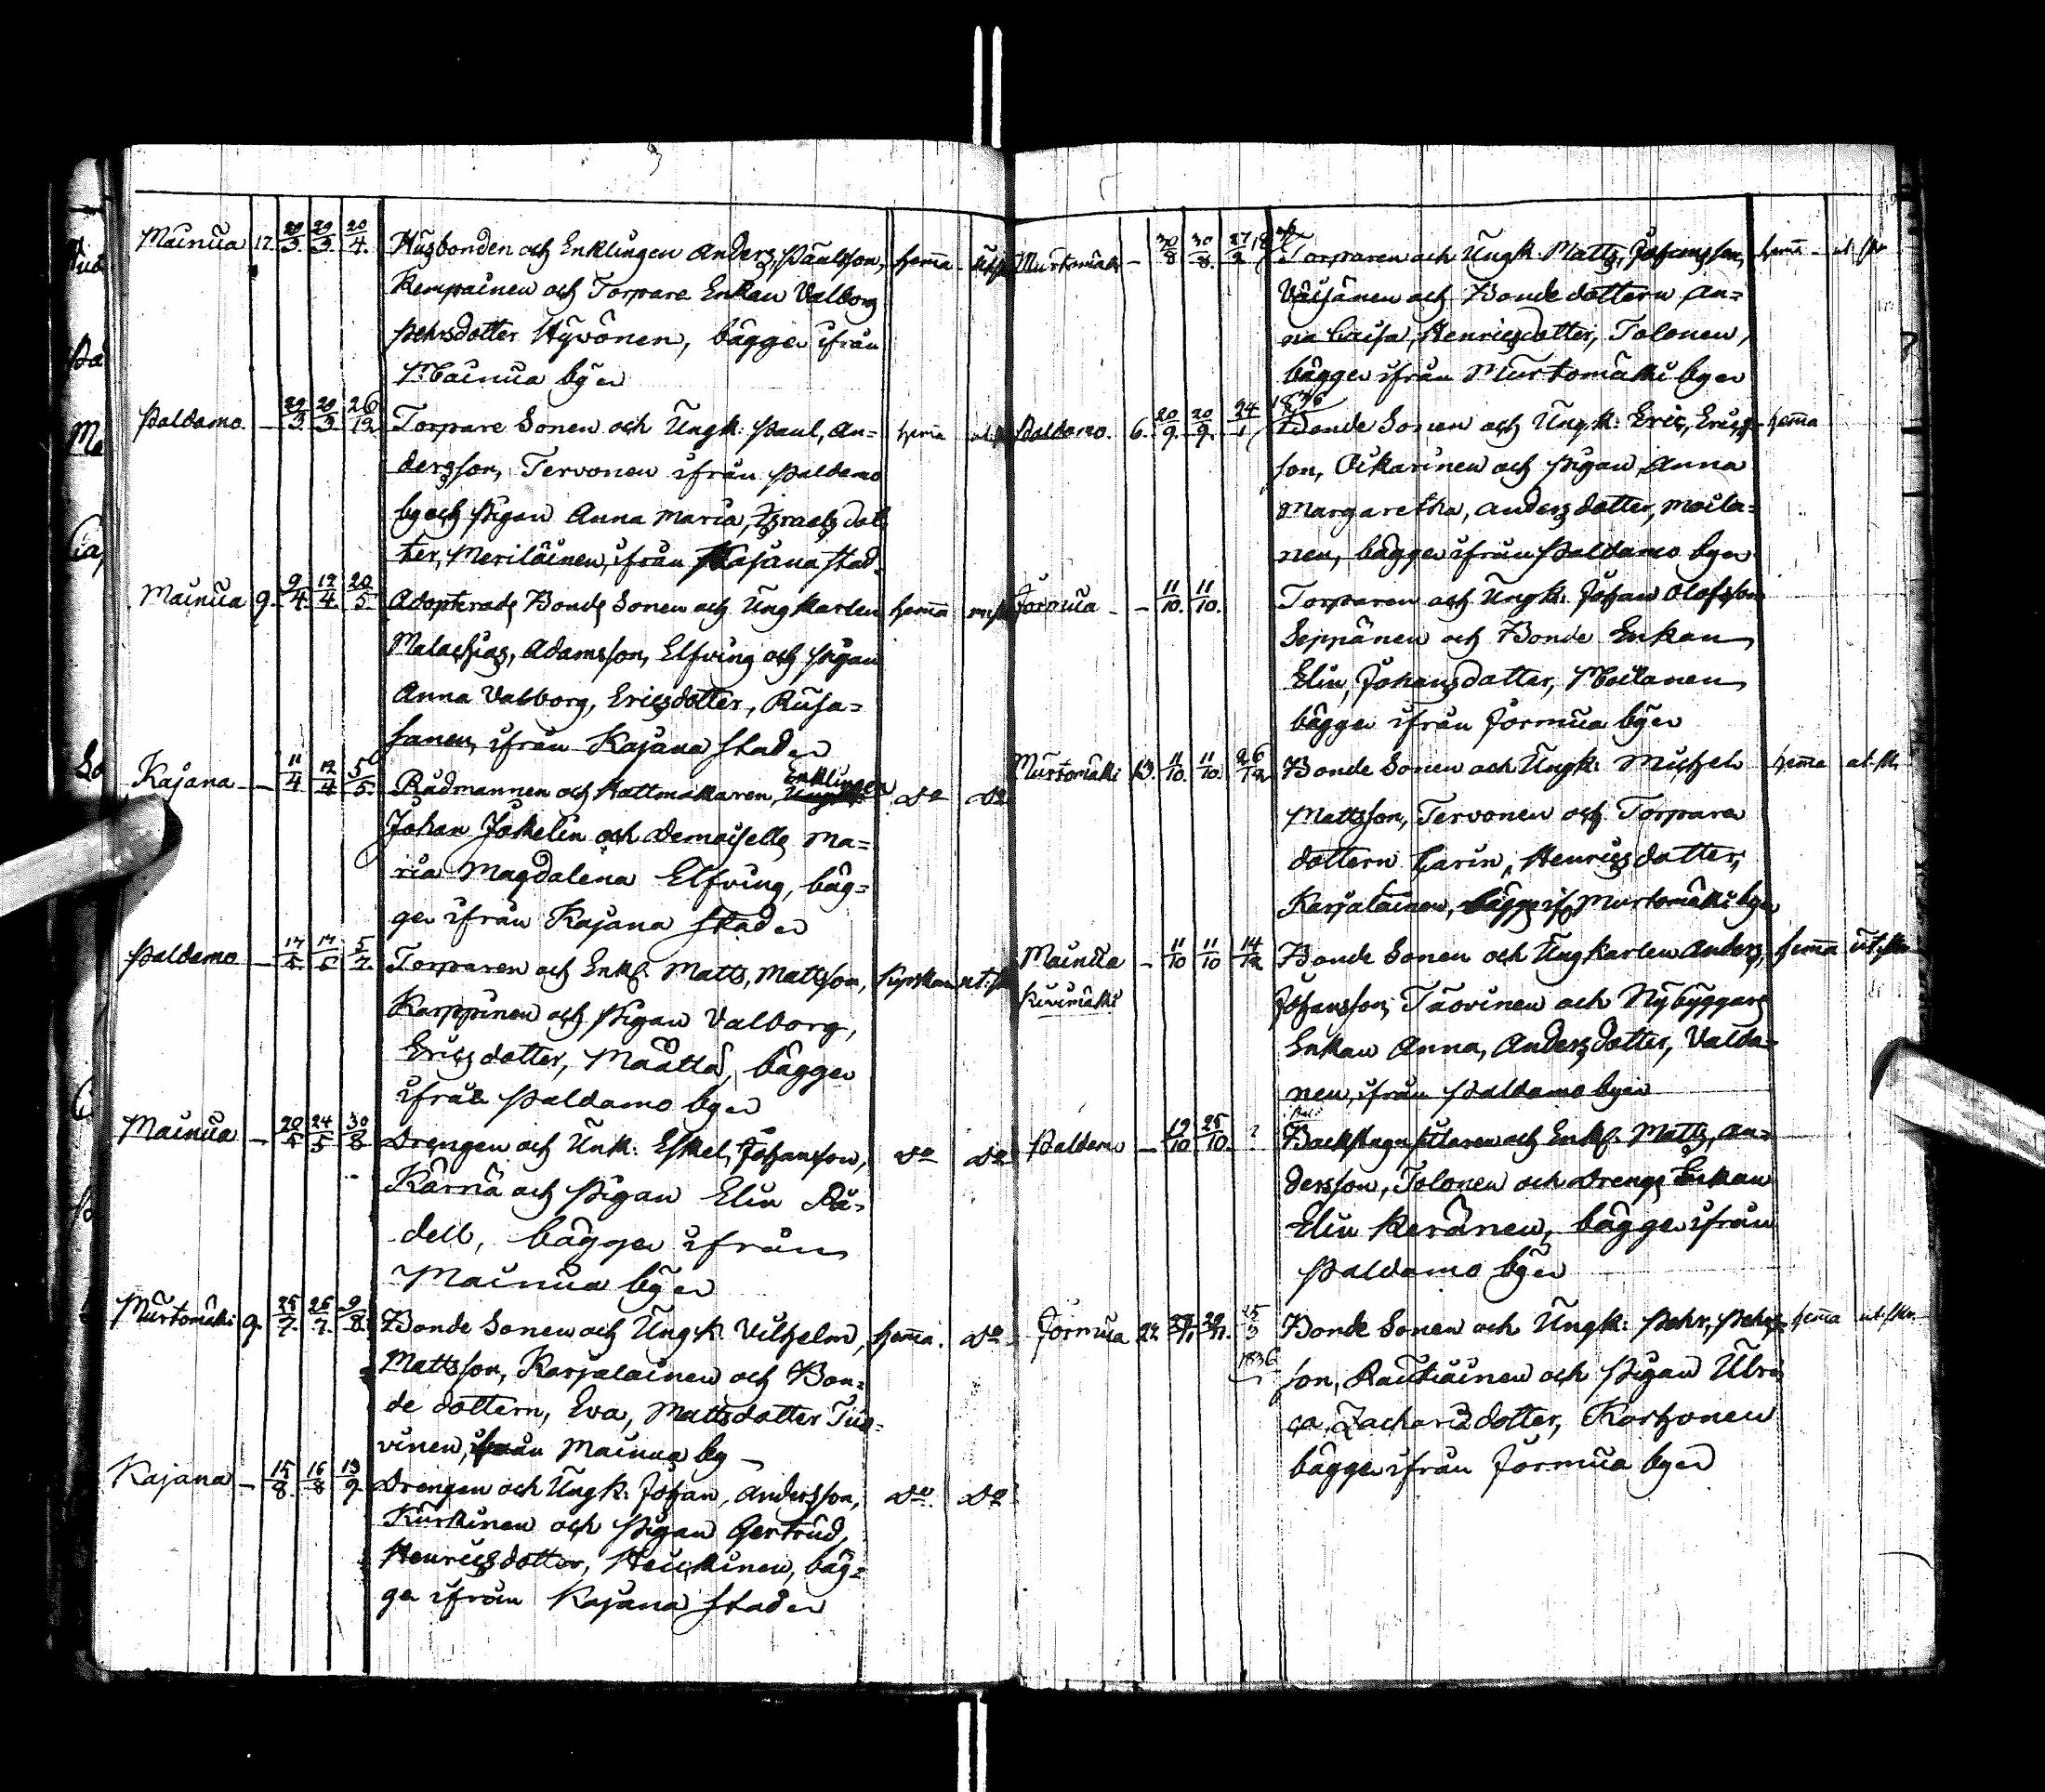 Mainua 17. 29/3. 29/3. 20/4. Husbonden och Enklingen Anders, Paulsson, hemma
Kempainen och Torpare Enkan Valborg
Pehrsdotter Hyvönen, bägge ifrån
Mainua by
Paldamo — 29/3. 29/3. 26/12. Torpare Sonen och Ungk: Paul, An=
dersson, Tervonen ifrån Paldamo
by och Pigan Anna Maria, Israels dot
ter, Meriläinen, ifrån Kajana stad.
Mainua 9. 9/4. 12/4. 20/5. Adopterade Bonde Sonen och Ungkarlen hemma
Malachias, Adamsson, Elfving och Pigan
Anna Valborg, Ericsdotter, Rusa=
hanen, ifrån Kajana stad
Kajana — 11/4. 12/4. 5/5. Rådmannen och Hattmakaren, Enklingen do do
Johan Jakelin och Demoiselle Ma=
ria Magdalena Elfving, bäg=
ge ifrån Kajana stad
Paldamo — 17/5. 17/5. 5/7. Torparen och Enkl. Matts, Mattsson, kyrkan ut. sk
Karppinen och Pigan Valborg,
Erics dotter, Määttä, bägge
ifrån Paldamo by
Mainua — 20/5. 24/5. 30/8. Drengen och Unk: Eskel, Johansson, do do
Kärnä och Pigan Elin Rå=
dell, bägge ifrån
Mainua by
Murtomäki 9. 25/7. 26/7. 9/8. Bonde Sonen och Ungk. Vilhelm, hemma. do
Mattsson, Karjalainen och Bon=
de dottern, Eva, Mattsdotter Tuo=
vinen, ifrån Mainua by —
Kajana — 15/8. 16/8. 13/9. Drengen och Ungk: Johan, Andersson, do. do
Kurkinen och Pigan Gertrud,
Henricsdotter, Heikkinen, bäg=
ge ifrån Kajana stad
Murtomäki — 30/8. 30/8. 27/2 Torparen och Ungk. Matts, Johansson, hemma
Väisänen och Bonde dottern An=
na Caisa, Henricsdotter, Tolonen,
bägge ifrån Murtomäki by
1836
Paldamo. 6. 20/9. 20/9. 24/1 Bonde Sonen och Ungk: Eric, Erics= hemma
son, Oikarinen och Pigan, Anna
Margaretha, Anders dotter, Moila=
nen, bägge ifrån Paldamo by
Jormua — 11/10. 11/10. Torparen och Ungk: Johan Olofsson
Seppänen och Bonde Enkan
Elin, Johans dotter, Moilanen
bägge ifrån Jormua by
Murtomäki 13. 11/10. 11/10. 26/12 Bonde Sonen och Ungk: Michel hemma ut. sk.
Mattsson, Tervonen och Torpare
dottern Carin, Henrics dotter,
Karjalainen, bägge if. Murtomäki by
Mainua — 11/10 11/10 14/12 Bonde Sonen och Ungkarlen Anders, hemma
Kivimäki Johansson, Tuovinen och Nybyggare
Enkan Anna, Anders dotter, Valda=
nen, ifrån Paldamo by
Paldamo — 19/10 25/10. ? Backstugusittaren och Enkl. Matts, An=
dersson, Tolonen och Drengs Enkan
Elin Keränen, bägge ifrån
Paldamo by
Jormua 22. 29/11 29/11. 25/3 Bonde Sonen och Ungk: Pehr, Pehrs= hemma
1836 son, Rautiainen och Pigan Ulri
ca, Zacharis dotter, Korhonen
bägge ifrån Jormua by